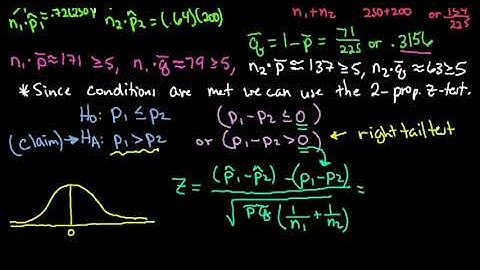 n₁·p̂₁=.72(250) n₂·p̂₂=(.64)(200) n₁+n₂ 250+200 or 154/225
q̄=1-p̄=71/225 or .3156
n₁·p̄≈171≥5, n₁·q̄≈79≥5, n₂·p̄≈137≥5, n₂·q̄≈63≥5
*Since conditions are met we can use the 2-prop. z-test.
H₀: p₁≤p₂ (p₁-p₂≤0)
(claim)→Hₐ: p₁>p₂ or (p₁-p₂>0) ← right tail test
z=((p̂₁-p̂₂)-(p₁-p₂))/√(p̄q̄(1/n₁+1/n₂))=
0